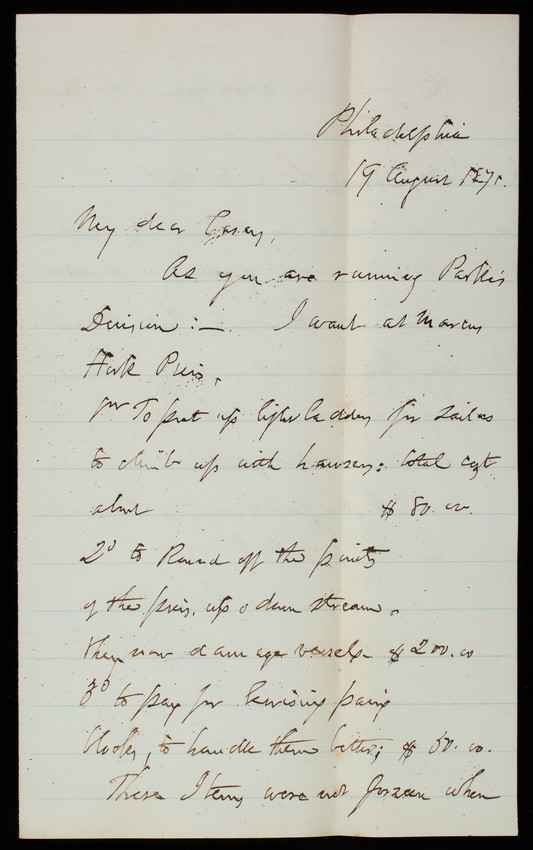 Philadelphia
19 August 1871.
My dear Casey,
As you are running Park's
Division :— I want at Marcus
Hook Piers,
To put up light ladders for sailors
to climb up with hawsers: total cost
about $ 80.00.
2d to Round off the points
of the piers, up & down stream.
they now damage vessels $200.00
3d to pay for lewising paving
blocks, to handle them better; $ 50.00.
These Items were not foreseen when